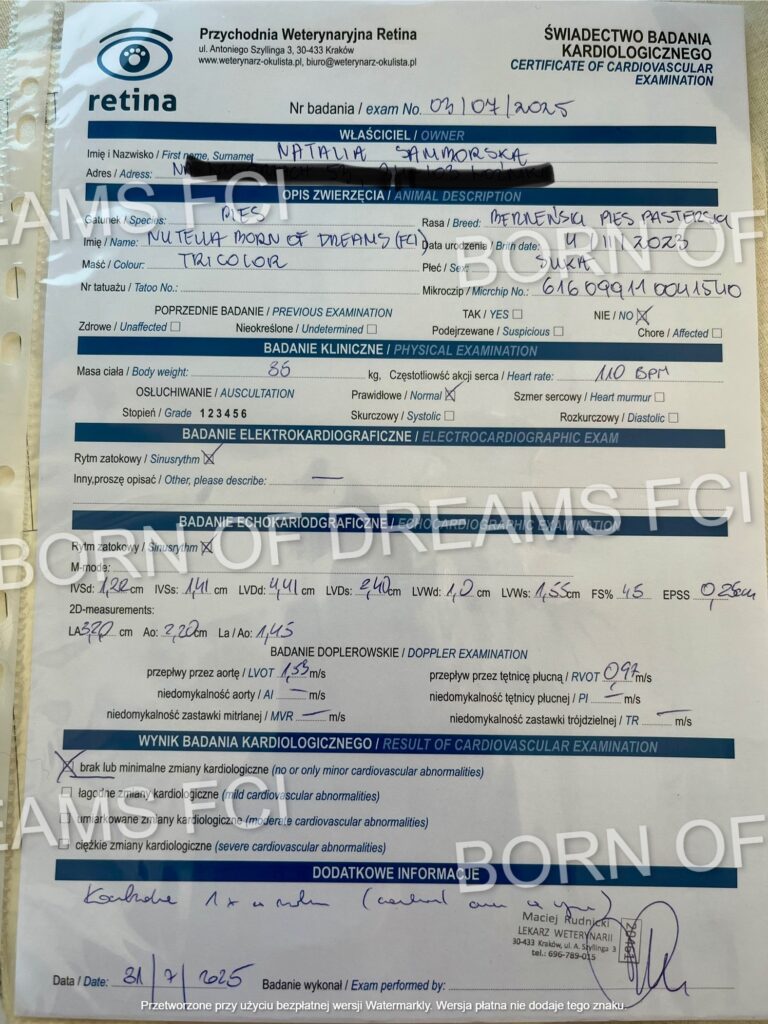 Przychodnia Weterynaryjna Retina
ul. Antoniego Szyllinga 3, 30-433 Kraków
www.weterynarz-okulista.pl, biuro@weterynarz-okulista.pl
retina
ŚWIADECTWO BADANIA
KARDIOLOGICZNEGO
CERTIFICATE OF CARDIOVASCULAR
EXAMINATION
Nr badania / exam No. 03/07/2025
WŁAŚCICIEL / OWNER
Imię i Nazwisko / First name, Surname NATALIA SAMBORSKA
Adres / Adress:
OPIS ZWIERZĘCIA / ANIMAL DESCRIPTION
Gatunek / Species: PIES Rasa / Breed: BERNEŃSKI PIES PASTERSKI
Imię / Name: NUTELLA BORN OF DREAMS (FCI) Data urodzenia / Birth date: 4/III/2023
Maść / Colour: TRICOLOR Płeć / Sex: SUKA
Nr tatuażu / Tatoo No.: Mikroczip / Microchip No.: 616099110041540
POPRZEDNIE BADANIE / PREVIOUS EXAMINATION TAK / YES NIE / NO
Zdrowe / Unaffected Nieokreślone / Undetermined Podejrzewane / Suspicious Chore / Affected
BADANIE KLINICZNE / PHYSICAL EXAMINATION
Masa ciała / Body weight: 35 kg, Częstotliowść akcji serca / Heart rate: 110 BPM
OSŁUCHIWANIE / AUSCULTATION Prawidłowe / Normal Szmer sercowy / Heart murmur
Stopień / Grade 1 2 3 4 5 6 Skurczowy / Systolic Rozkurczowy / Diastolic
BADANIE ELEKTROKARDIOGRAFICZNE / ELECTROCARDIOGRAPHIC EXAM
Rytm zatokowy / Sinusrythm
Inny,proszę opisać / Other, please describe: —
BADANIE ECHOKARIODGRAFICZNE / ECHOCARDIOGRAPHIC EXAMINATION
Rytm zatokowy / Sinusrythm
M-mode:
IVSd: 1,22 cm IVSs: 1,41 cm LVDd: 4,41 cm LVDs: 2,40 cm LVWd: 1,0 cm LVWs: 1,55 cm FS% 45 EPSS 0,26 cm
2D-measurements:
LA 3,20 cm Ao: 2,20 cm La / Ao: 1,45
BADANIE DOPLEROWSKIE / DOPPLER EXAMINATION
przepływy przez aortę / LVOT 1,53 m/s przepływ przez tętnicę płucną / RVOT 0,97 m/s
niedomykalność aorty / AI — m/s niedomykalność tętnicy płucnej / PI — m/s
niedomykalność zastawki mitrlanej / MVR — m/s niedomykalność zastawki trójdzielnej / TR — m/s
WYNIK BADANIA KARDIOLOGICZNEGO / RESULT OF CARDIOVASCULAR EXAMINATION
brak lub minimalne zmiany kardiologiczne (no or only minor cardiovascular abnormalities)
łagodne zmiany kardiologiczne (mild cardiovascular abnormalities)
umiarkowane zmiany kardiologiczne (moderate cardiovascular abnormalities)
ciężkie zmiany kardiologiczne (severe cardiovascular abnormalities)
DODATKOWE INFORMACJE
Kontrola 1x w roku
Maciej Rudnicki
LEKARZ WETERYNARII
30-433 Kraków, ul. A. Szyllinga 3
tel.: 696-789-015
Data / Date: 31/7/2025 Badanie wykonał / Exam performed by:
BORN OF DREAMS FCI
Przetworzone przy użyciu bezpłatnej wersji Watermarkly. Wersja płatna nie dodaje tego znaku.